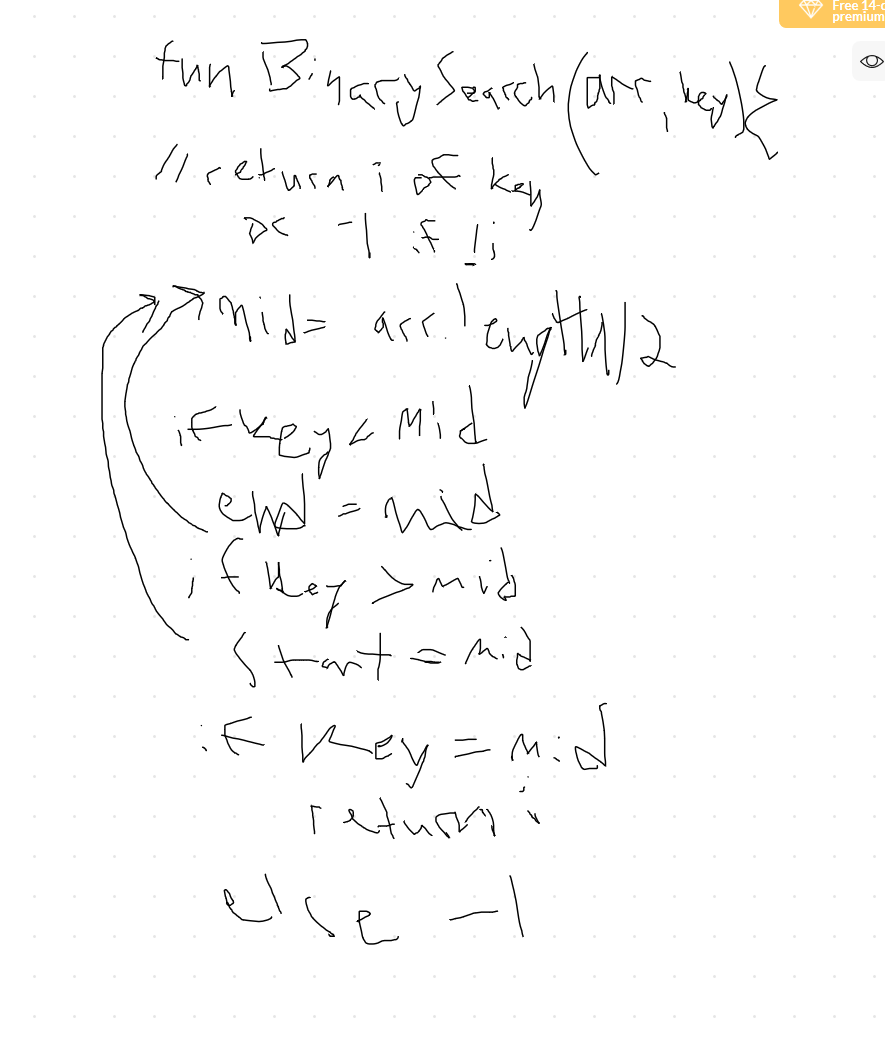 Free 14-d
premium
fun BinarySearch(arr, key){
// return i of key
or -1 if !i
mid = arr.length/2
if key < mid
end = mid
if key > mid
start = mid
if key = mid
return i
else -1